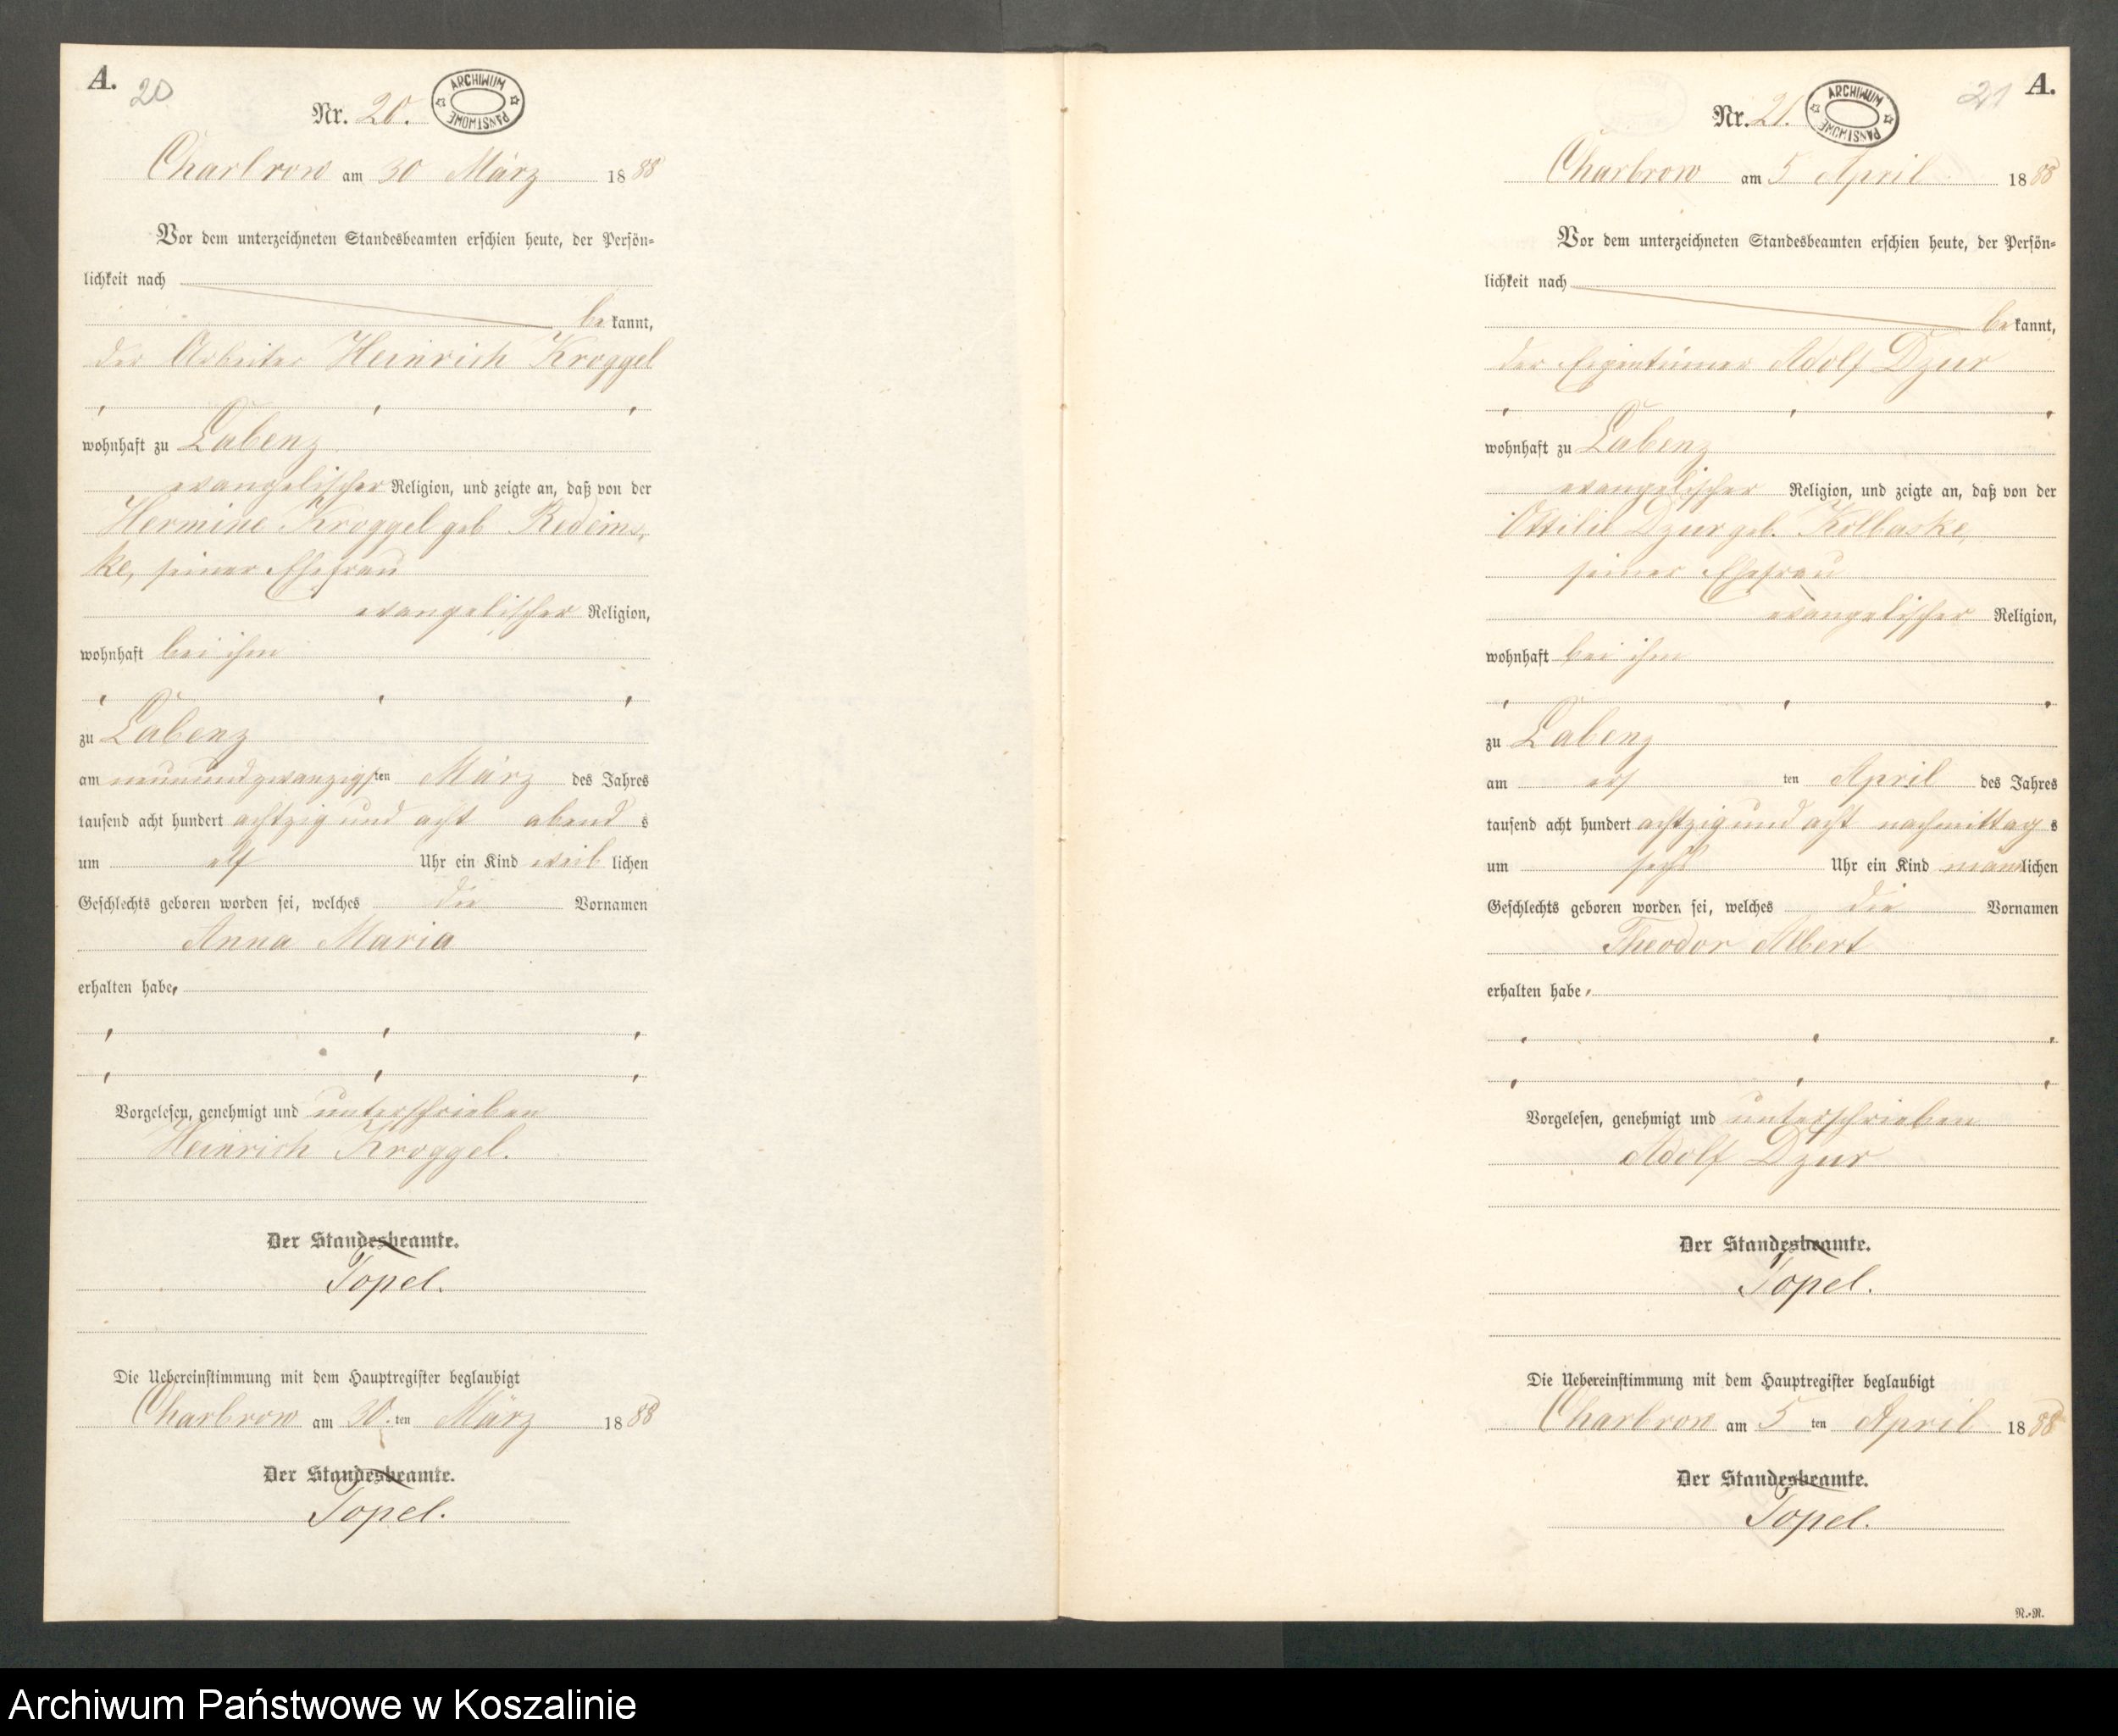 A.
20
Nr. 20.
ARCHIWUM PAŃSTWOWE
Charbrow am 30 März 1888
Vor dem unterzeichneten Standesbeamten erschien heute, der Persön=
lichkeit nach
bekannt,
der Arbeiter Heinrich Kroggel
wohnhaft zu Labenz
evangelischer Religion, und zeigte an, daß von der
Hermine Kroggel geb Redeims,
ke, seiner Ehefrau
evangelischer Religion,
wohnhaft bei ihm
zu Labenz
am neunundzwanzigsten März des Jahres
tausend acht hundert achtzig und acht abends
um elf Uhr ein Kind weiblichen
Geschlechts geboren worden sei, welches die Vornamen
Anna Maria
erhalten habe,
Vorgelesen, genehmigt und unterschrieben
Heinrich Kroggel.
Der Standesbeamte.
Topel.
Die Uebereinstimmung mit dem Hauptregister beglaubigt
Charbrow am 30. ten März 1888
Der Standesbeamte.
Topel.
21
A.
Nr. 21.
ARCHIWUM PAŃSTWOWE
Charbrow am 5 April 1888
Vor dem unterzeichneten Standesbeamten erschien heute, der Persön=
lichkeit nach
bekannt,
der Eigentümer Adolf Dzur
wohnhaft zu Labenz
evangelischer Religion, und zeigte an, daß von der
Ottilie Dzur geb. Kolbaske,
seiner Ehefrau
evangelischer Religion,
wohnhaft bei ihm
zu Labenz
am ers ten April des Jahres
tausend acht hundert achtzig und acht nachmittags
um sechs Uhr ein Kind mänlichen
Geschlechts geboren worden sei, welches die Vornamen
Theodor Albert
erhalten habe,
Vorgelesen, genehmigt und unterschrieben
Adolf Dzur
Der Standesbeamte.
Topel.
Die Uebereinstimmung mit dem Hauptregister beglaubigt
Charbrow am 5 ten April 1888
Der Standesbeamte.
Topel.
N.-N.
Archiwum Państwowe w Koszalinie